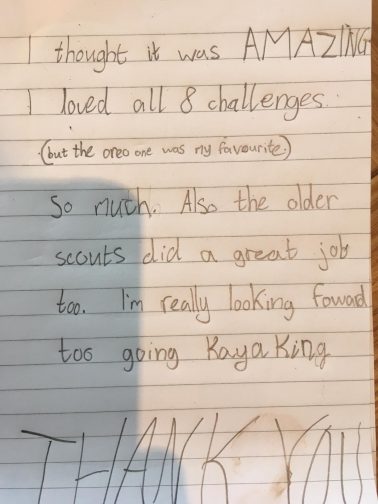 I thought it was AMAZING
I loved all 8 challenges.
(but the oreo one was my favourite.)
So much. Also the older
scouts did a great job
too. I'm really looking foward
too going Kayaking
THANK YOU